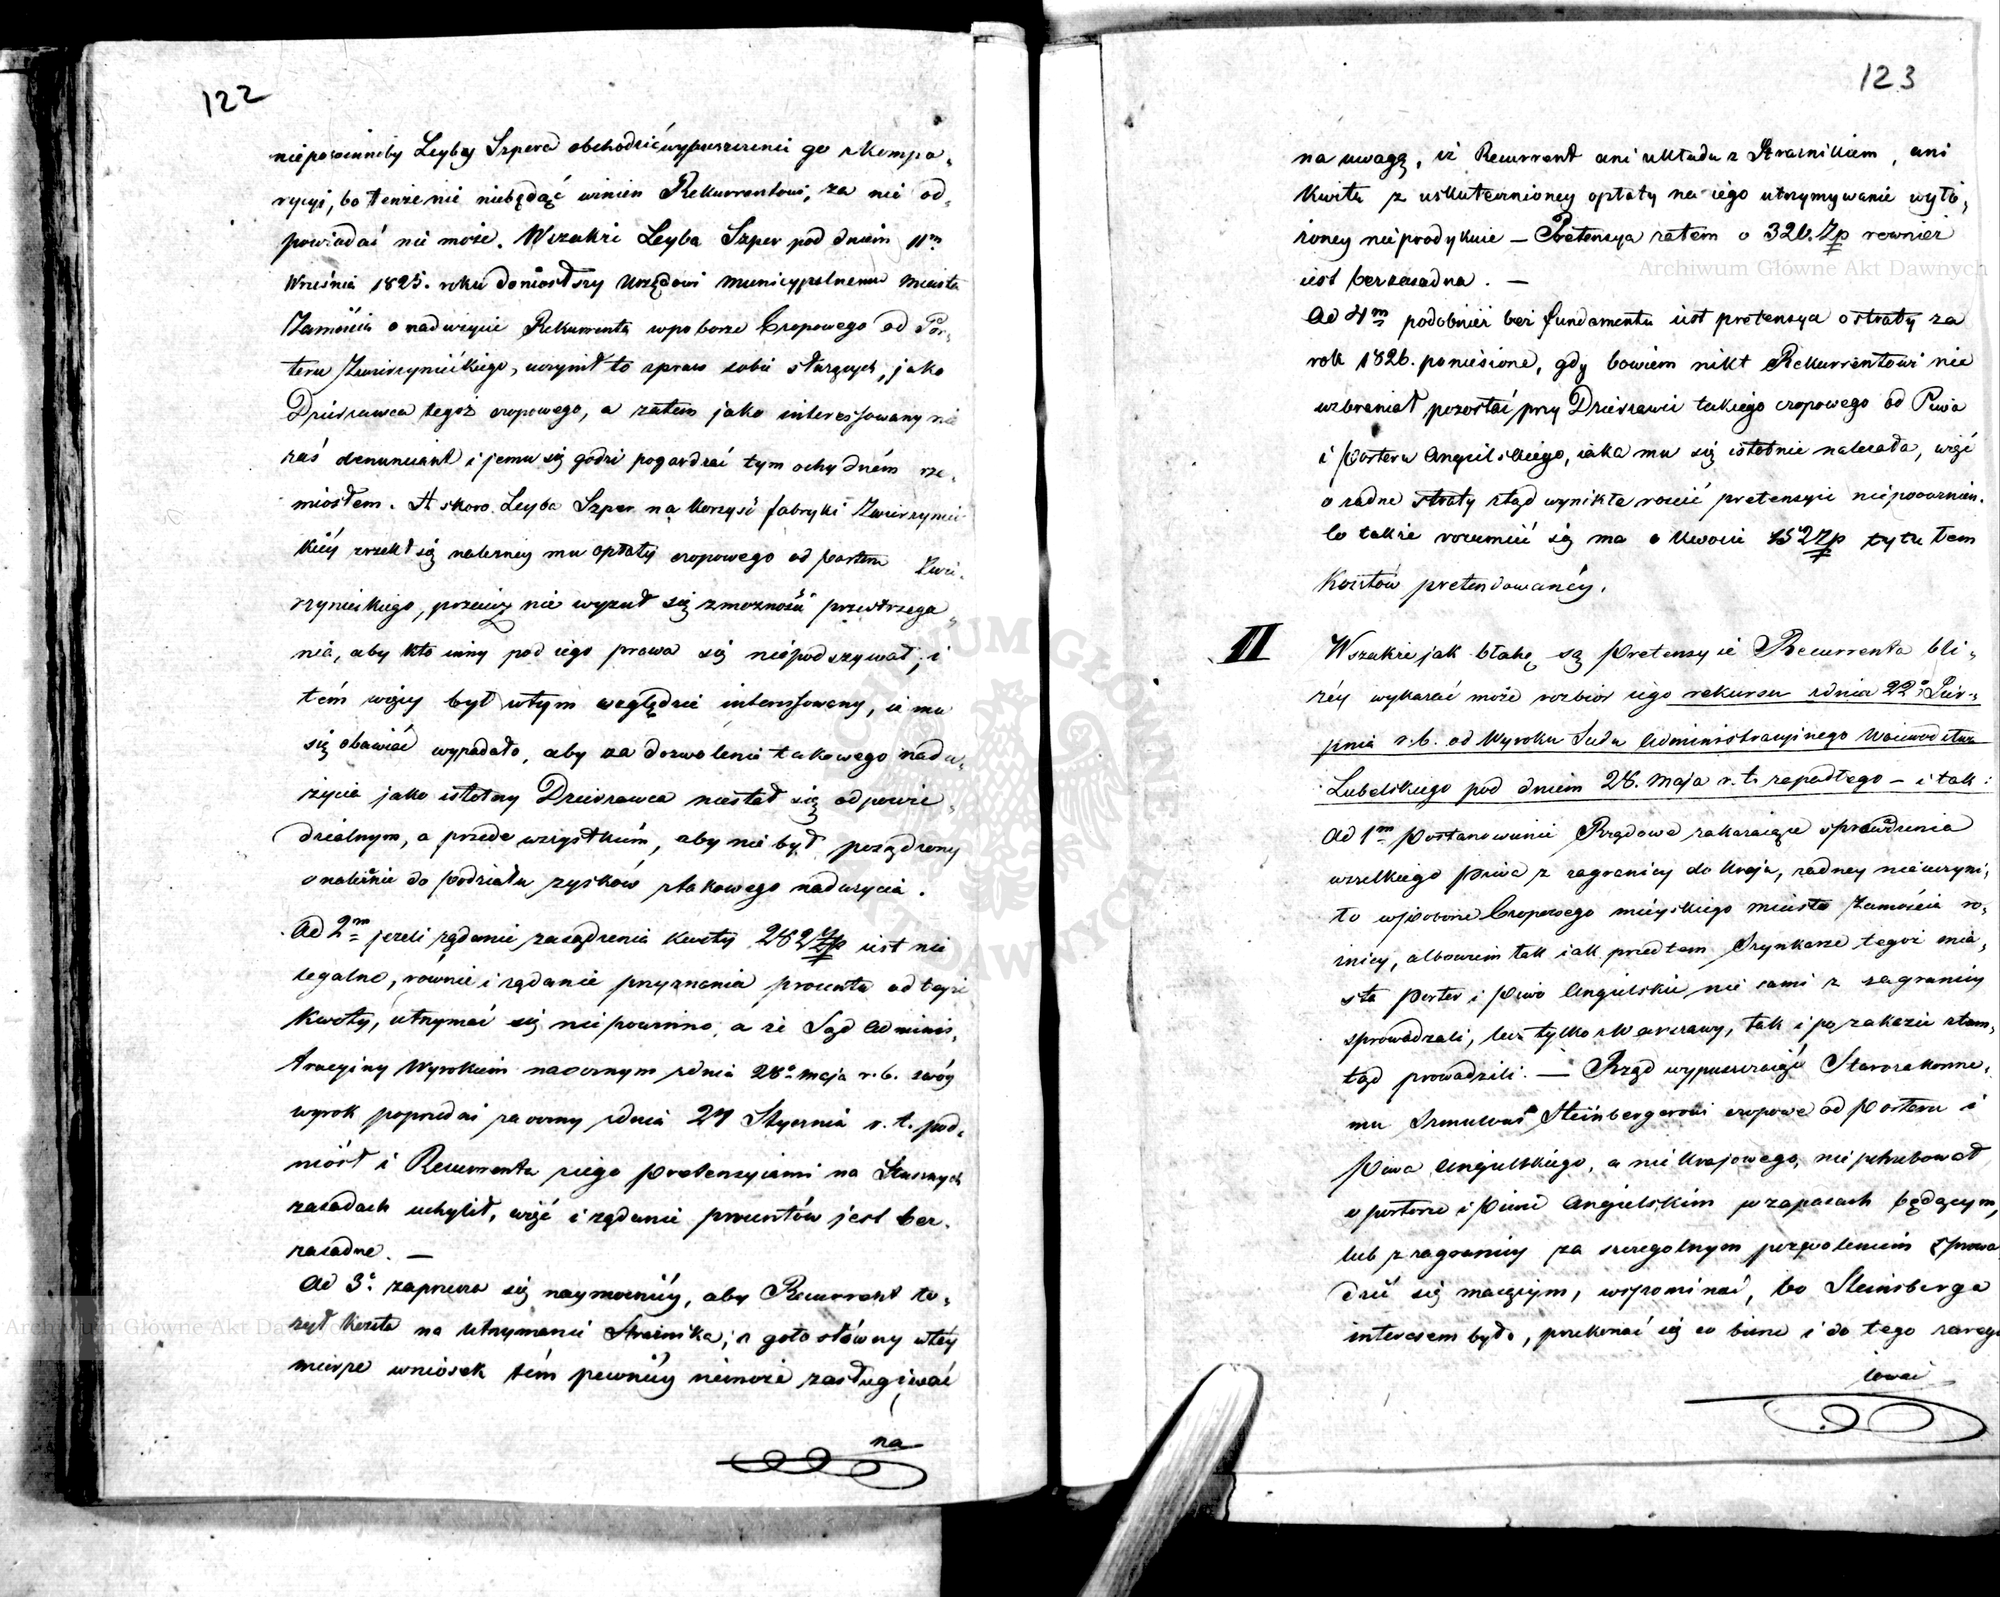 122
niepowinnoby Leyby Szpera obchodzić wypuszczenie go z kompa-
rycyi, bo tenże nic niebędąć winien Rekurrentowi, za nic od-
powiadać nie może. Wszakże Leyba Szper pod dniem 11m
Września 1825. roku doniosłszy Urzędowi Municypalnemu Miasta
Zamościa o nadużycie Rekurrenta w poborze Czopowego od Por-
teru Zwierzynieckiego, uczynił to z praw sobie służących, jako
Dzierzawca tegoż czopowego, a zatem jako interessowany nie
zaś denunciant i jemu się godzi pogardzać tym ochydném rze-
miosłem. A skoro Leyba Szper na korzyść fabryki Zwierzyniec-
kiéy zrzekł się należney mu opłaty czopowego od porteru Zwie-
rzynieckiego, przecież nie wyzuł się z możności przestrzega-
nia, aby kto inny pod iego prawa się niepodszywał; i
tém więcy był w tym względzie interessowany, ie mu
się obawiać wypadało, aby za dozwolenie takowego nadu-
życia jako istotny Dzierzawca niestał się odpowie-
dzialnym, a przede wszystkiém, aby nie był posądzony
o należnie do podziału zysków z takowego nadużycia.
Ad 2m jeżeli żądanie zasądzenia kwoty 282 Zp iest nie
legalne, rownie i żądanie przyznania procentu od teyże
kwoty, utrzymać się niepowinno, a że Sąd Adminis-
tracyiny Wyrokiem naocznym z dnia 28o Maja r. b. swóy
wyrok poprzedni zaoczny z dnia 24 Stycznia r. t. pod-
niósł i Recurrenta z iego pretensyiami na słusznych
zasadach uchylił, więc i żądanie procentów jest bez-
zasadne. —
Ad 3o zaprzecza się naymocniéy, aby Recurrent ło-
żył koszta na utrzymanie Strażnika; a gołosłówny w téy
mierze wniosek tém pewniéy niemoże zasługiwać
na
123
na uwagę, iż Recurrent ani układu z Strażnikiem, ani
kwitu z uskutecznioney opłaty na iego utrzymywanie wyło-
żoney nieprodykuie — Pretensya zatem o 326. Zp rownież
iest bezzasadna. —
Ad 4m podobnież bez fundamentu iest pretensya o straty za
rok 1826. poniesione, gdy bowiem nikt Rekurrentowi nie
wzbraniał pozostać przy Dzierzawie takiego czopowego od Piwa
i Porteru Angielskiego, iaka mu się istotnie nalezała, więc
o żadne straty ztąd wynikłe rościć pretensyie niepowinien.
Co także rozumieć się ma o kwocie 152 Zp tytułem
kosztów pretendowanéy.
II Wszakże jak błahe są pretensyie Recurrenta bli-
żéy wykazać może rozbiór iego rekursu z dnia 22o Sier-
pnia r. b. od Wyroku Sądu Administracyinego Woiewodztwa
Lubelskiego pod dniem 28. Maja r. t. zapadłego — i tak:
Ad 1m Postanowienie Rządowe zakazuiące sprowadzenia
wszelkiego piwa z zagranicy do kraju, żadney nieuczyni-
ło w poborze Czopowego mieyskiego miasta Zamościa ro-
żnicy, albowiem tak iak przedtem Szynkarze tegoż mia-
sta Porter i Piwo Angielskie nie sami z zagranicy
sprowadzali, lecz tylko z Warszawy, tak i po zakazie ztam-
tąd prowadzili. — Rząd wypuszczaiąc Starozakonne-
mu Szmulowi Steinbergerowi czopowe od porteru i
Piwa Angielskiego, a nie krajowego, nie potrzebował
o porterze i Piwie Angielskim w zapasach będącym,
lub z zagranicy za szczególnym pozwoleniem sprowa
dzić się maiącym, wspominać, bo Steinsberga
interesem było, przekonać się co bierze i do tego zareg
lować